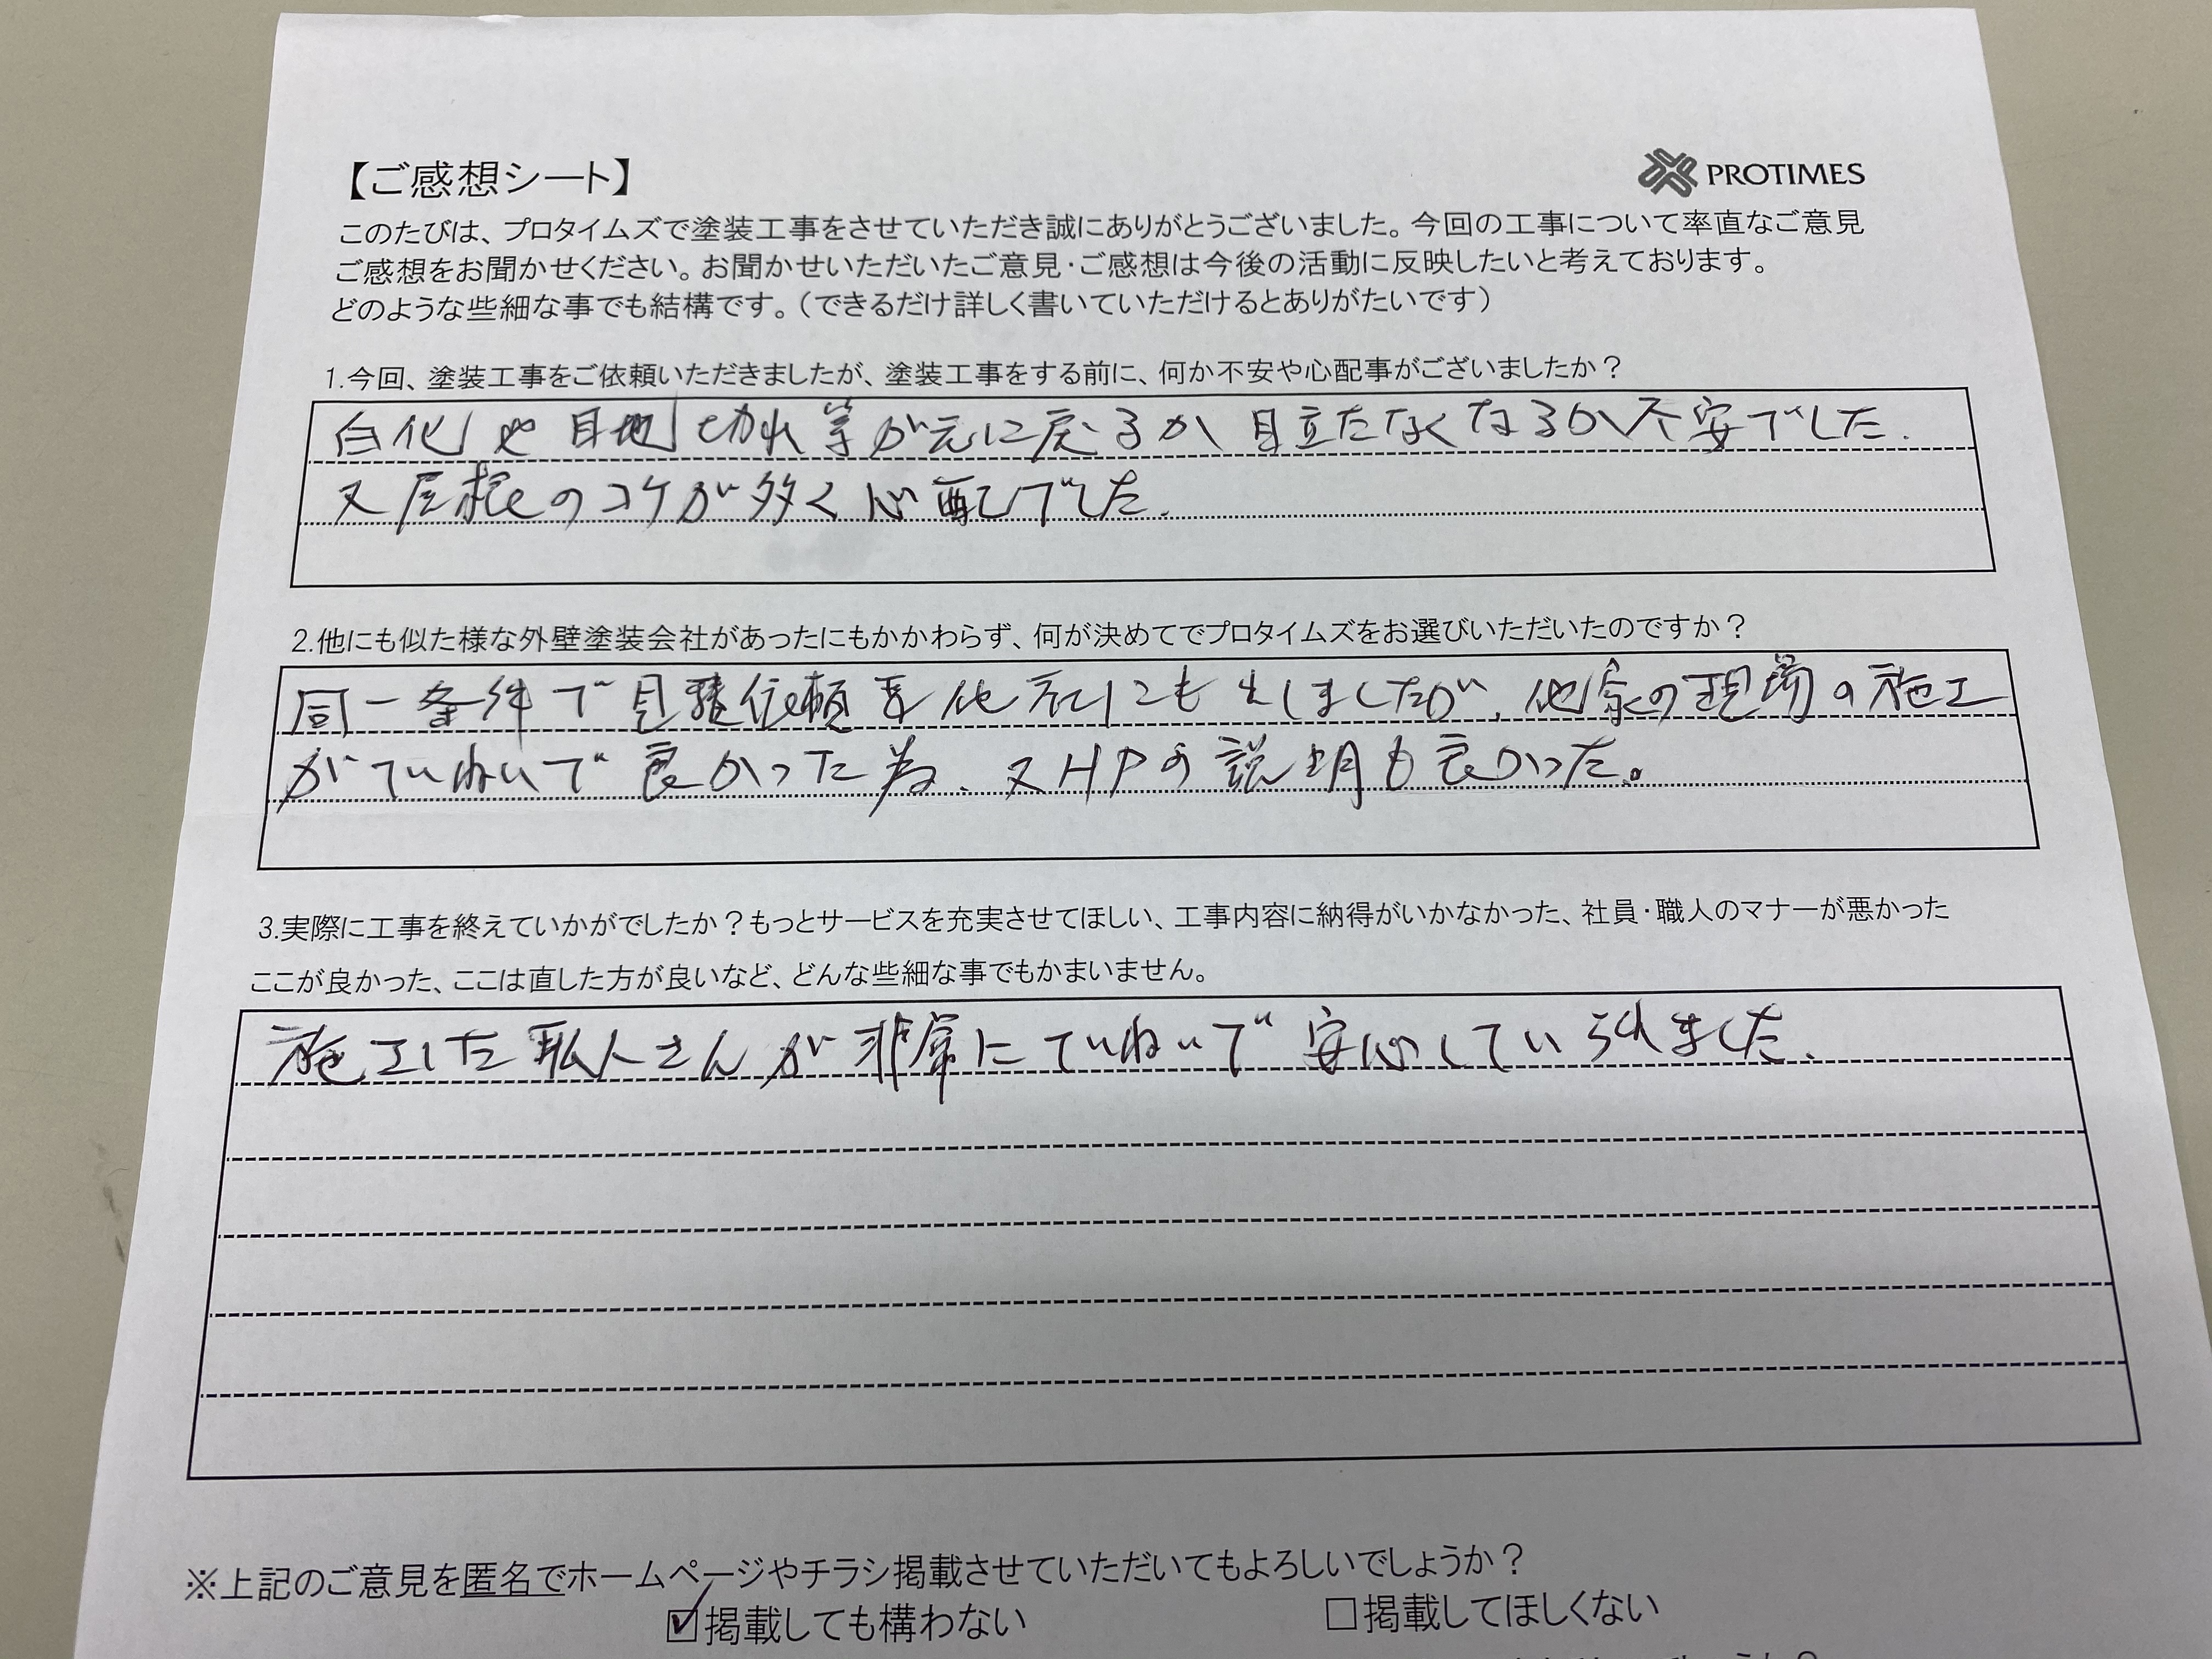 【ご感想シート】
PROTIMES
このたびは、プロタイムズで塗装工事をさせていただき誠にありがとうございました。今回の工事について率直なご意見
ご感想をお聞かせください。お聞かせいただいたご意見・ご感想は今後の活動に反映したいと考えております。
どのような些細な事でも結構です。（できるだけ詳しく書いていただけるとありがたいです）
1.今回、塗装工事をご依頼いただきましたが、塗装工事をする前に、何か不安や心配事がございましたか？
白化や目地切れ等が元に戻るか目立たなくなるか不安でした.
又屋根のコケが多く心配でした.
2.他にも似た様な外壁塗装会社があったにもかかわらず、何が決めてでプロタイムズをお選びいただいたのですか？
同一条件で見積依頼を他社にも出しましたが、他家の現場の施工
がていねいで良かった為、又HPの説明も良かった。
3.実際に工事を終えていかがでしたか？もっとサービスを充実させてほしい、工事内容に納得がいかなかった、社員・職人のマナーが悪かった
ここが良かった、ここは直した方が良いなど、どんな些細な事でもかまいません。
施工した職人さんが非常にていねいで安心していられました.
※上記のご意見を匿名でホームページやチラシ掲載させていただいてもよろしいでしょうか？
☑掲載しても構わない
□掲載してほしくない